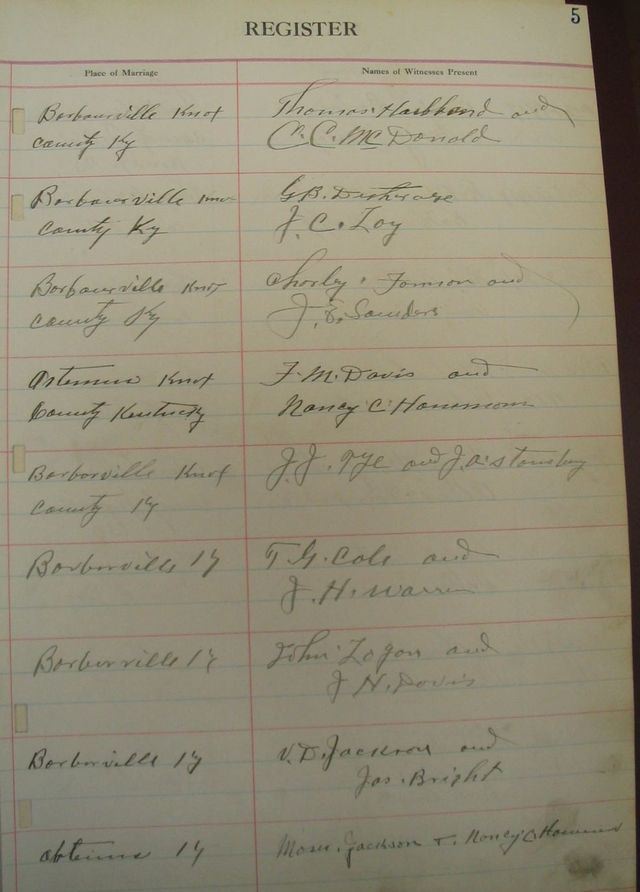 5
REGISTER
Place of Marriage
Names of Witnesses Present
Barbourville Knox
county Ky
Thomas Hubbard and
C. C. McDonald
Barbourville Knox
county Ky
G B.
J. C. Loy
Barbourville Knox
county Ky
Charley and
J. E. Sanders
Artemus Knox
County Kentucky
F. M. Davis and
Nancy C. Hammon
Barborville Knox
county Ky
J. J. Tye and J. A. Stansbury
Barborville Ky
T. G. Cole and
J. H. Warren
Barborville Ky
John Logan and
J N. Davis
Barborville Ky
V. D. Jackson and
Jas. Bright
Ky
Jackson Nancy C